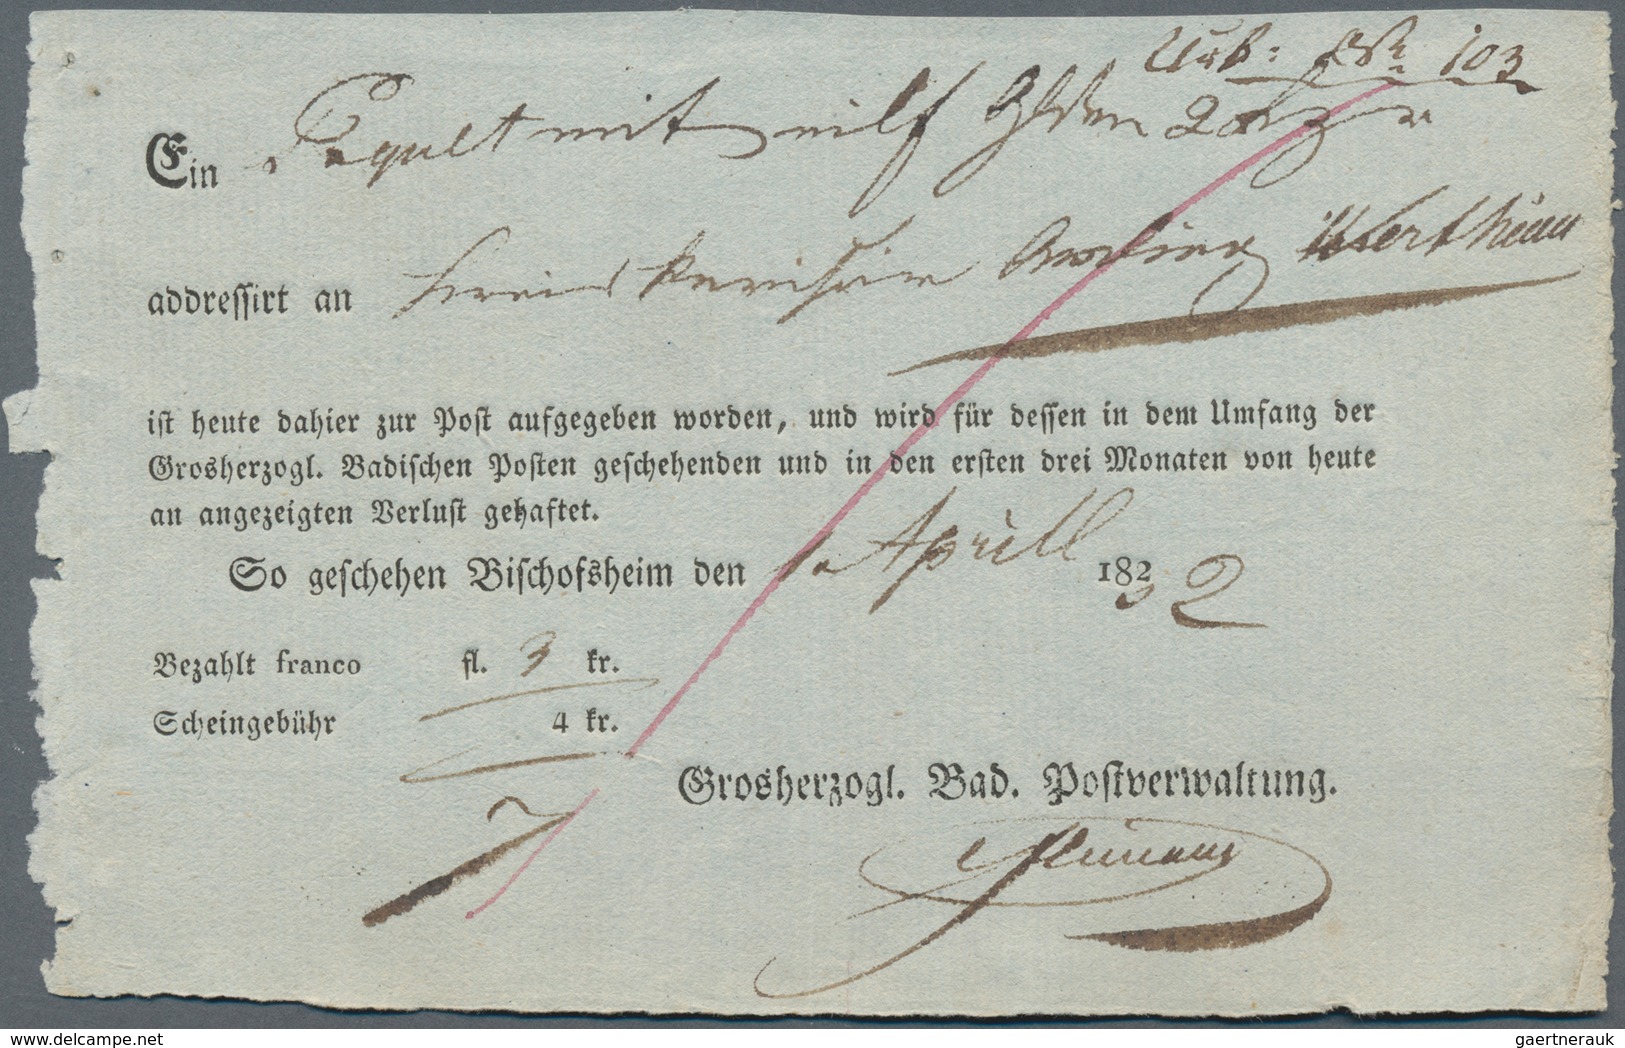 103
Ein Paquet mit eilf Gulden
addressirt an Wertheim
ist heute dahier zur Post aufgegeben worden, und wird für dessen in dem Umfang der
Grosherzogl. Badischen Posten geschehenden und in den ersten drei Monaten von heute
an angezeigten Verlust gehaftet.
So geschehen Bischofsheim den 1. Aprill 1832
Bezahlt franco fl. 3 kr.
Scheingebühr 4 kr.
7
Grosherzogl. Bad. Postverwaltung.
www.delcampe.net
gaertnerauk